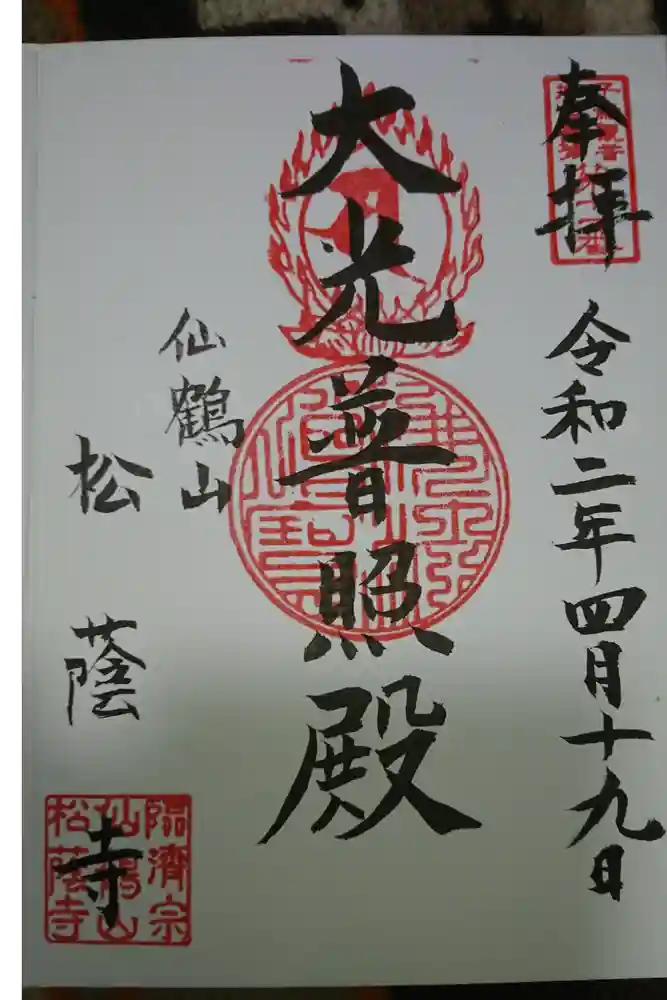 奉拝
令和二年四月十九日
大光普照殿
仙鶴山
松蔭寺
臨済宗
仙鶴山
松蔭寺